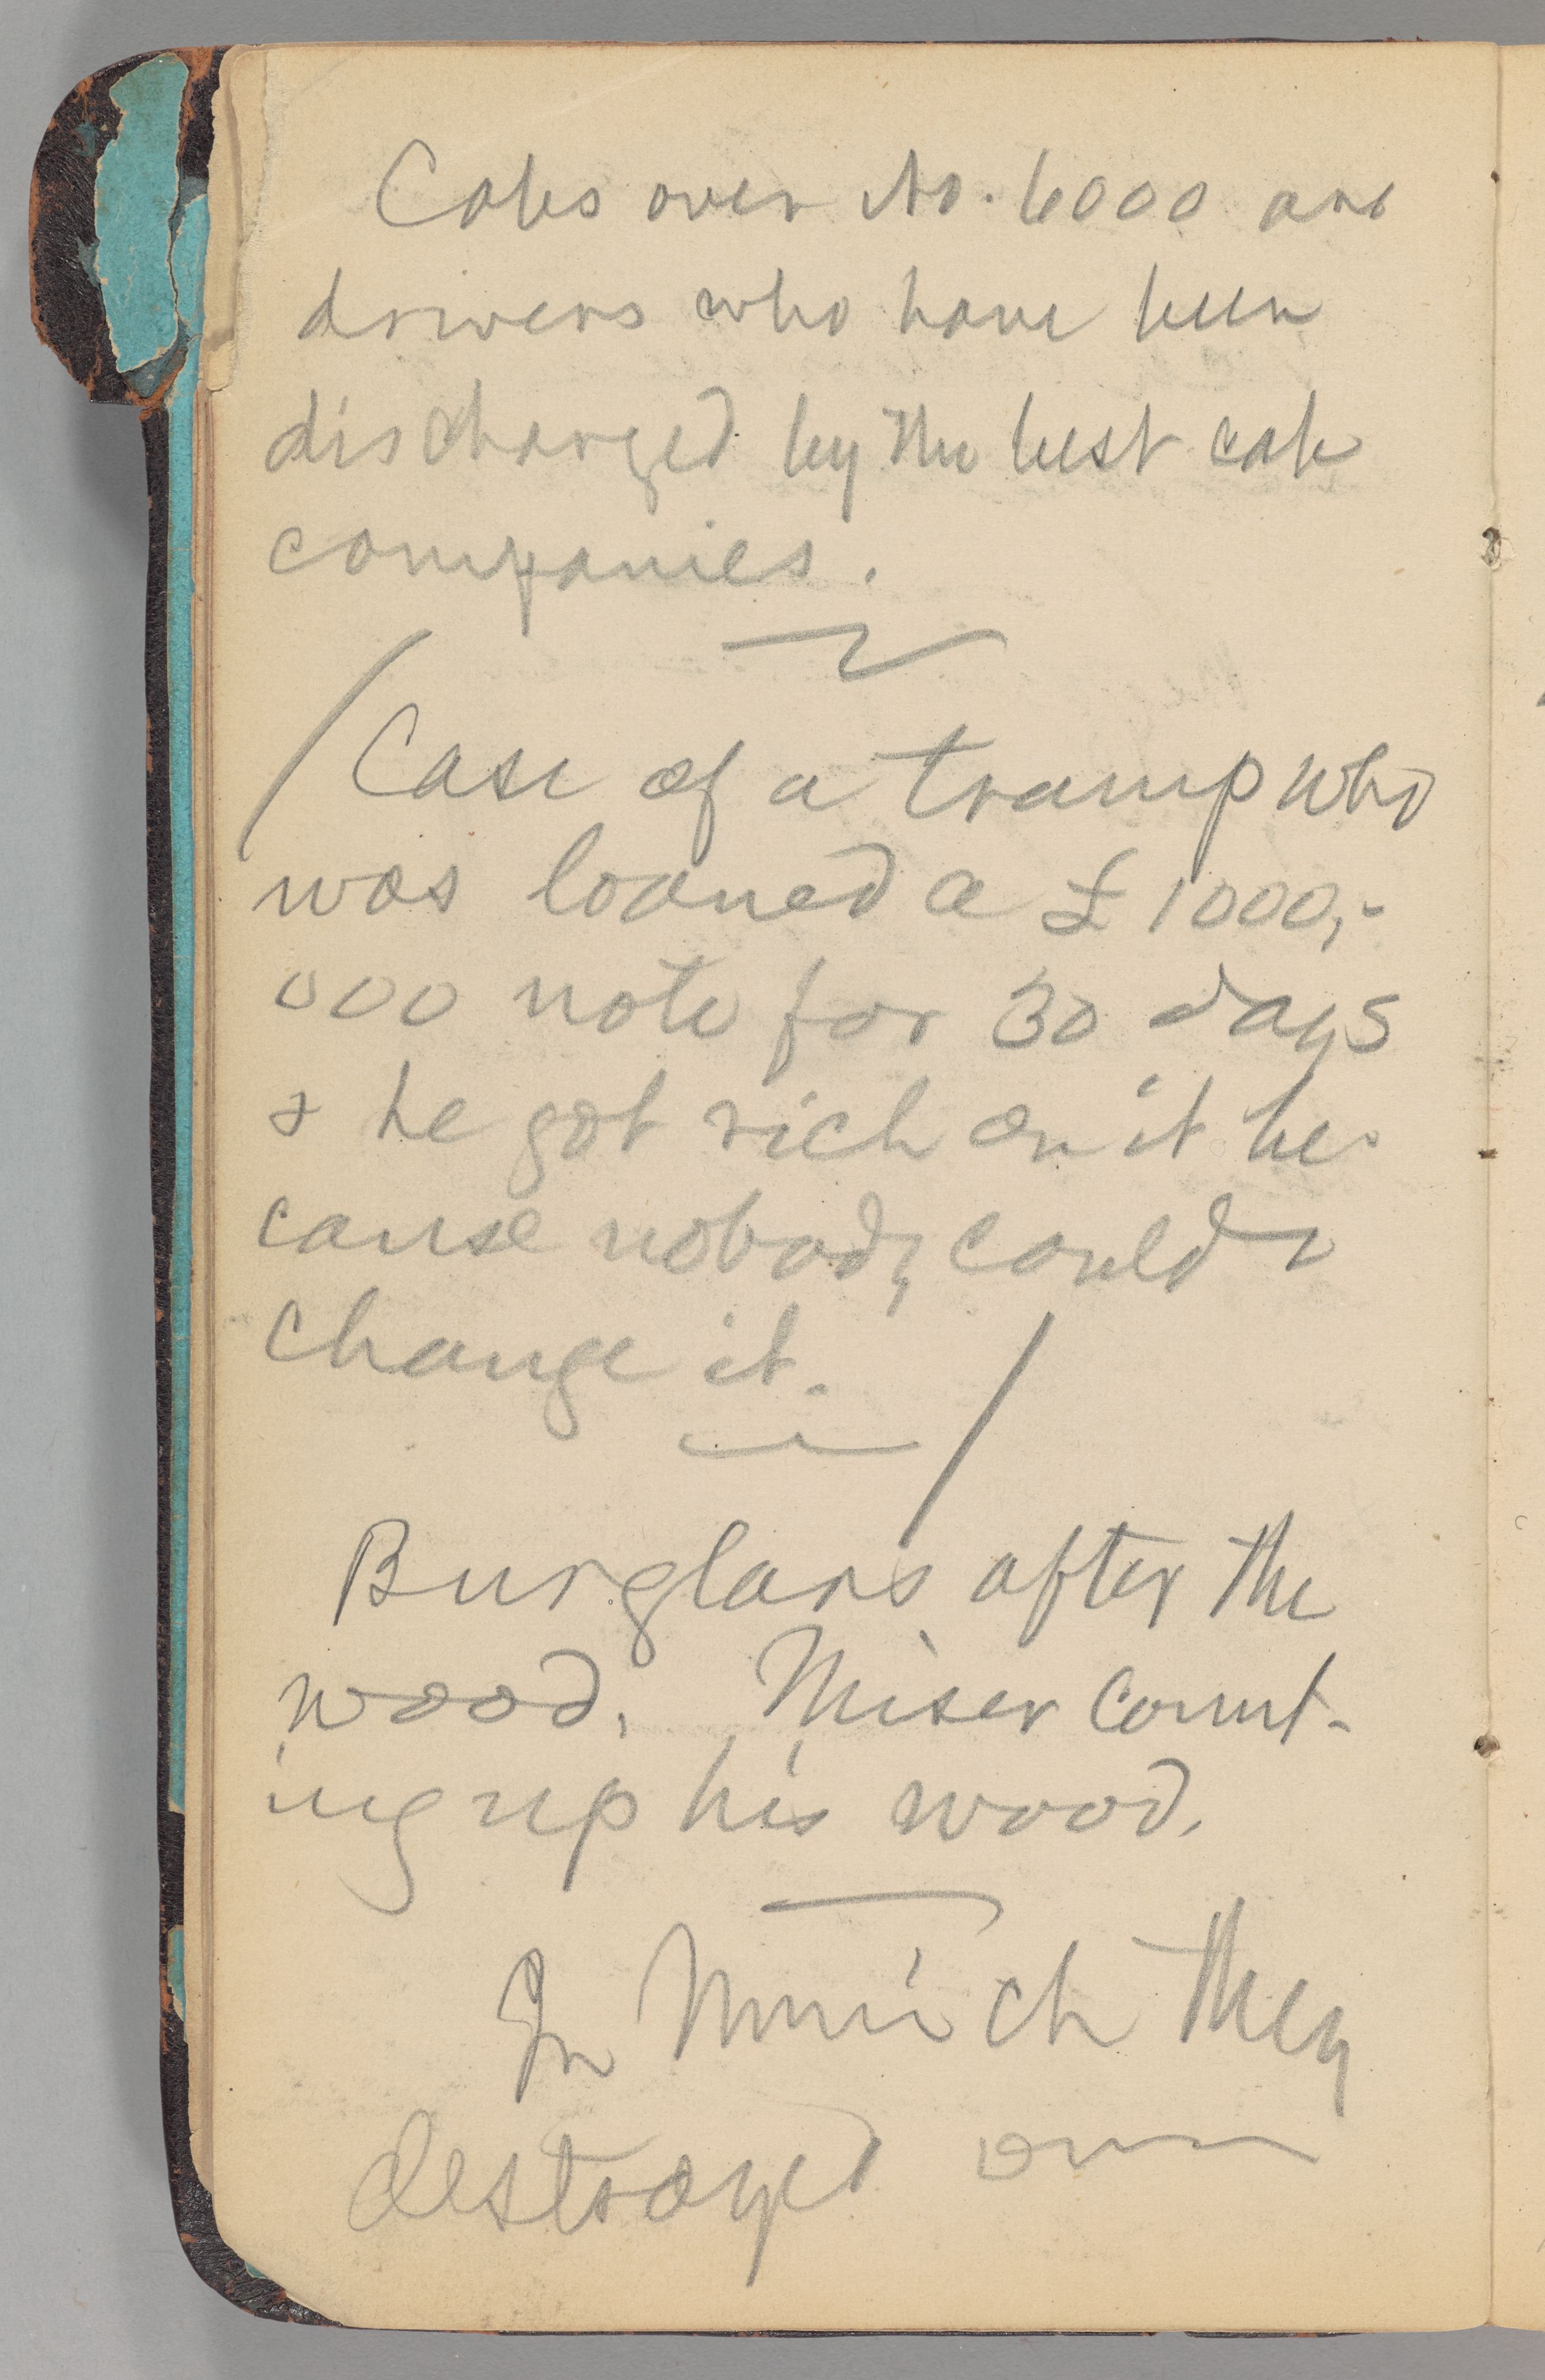 Cabs over No. 6000 are
drivers who have been
discharged by the best cab
companies.
Case of a tramp who
was loaned a £1000,-
000 note for 30 days
& he got rich on it be-
cause nobody could
change it.
Burglars after the
wood. Miser count-
ing up his wood.
In Munich they
destroyed our